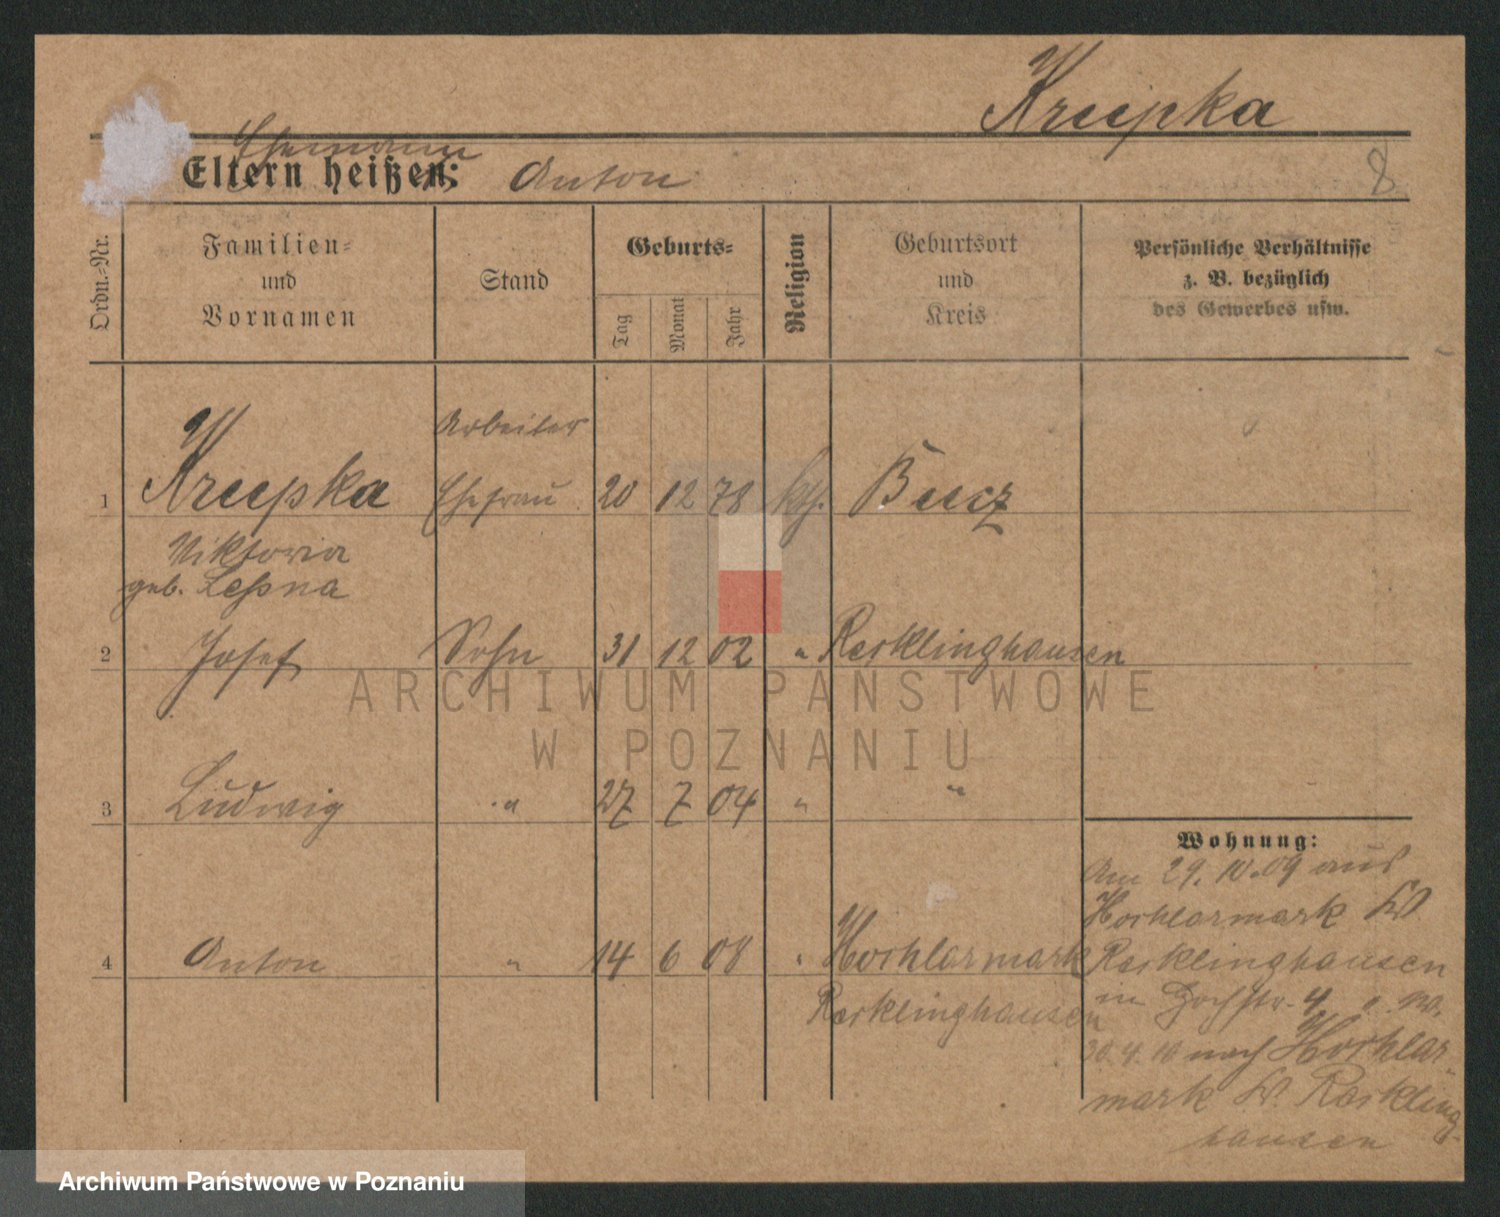 Krupka
Ehemann
Eltern heißen: Anton
8
Ordn.-Nr.
Familien-
und
Vornamen
Stand
Geburts-
Tag
Monat
Jahr
Religion
Geburtsort
und
Kreis
Persönliche Verhältnisse
z. B. bezüglich
des Gewerbes usw.
Arbeiter
1 Krupka Ehefrau 20 12 78 kth. Bucz
Viktoria
geb. Leßna
2 Josef Sohn 31 12 02 " Recklinghausen
3 Ludwig " 27 7 04 " "
4 Anton " 14 6 08 " Hochlarmark
Recklinghausen
Wohnung:
Am 29.10.09 aus
Hochlarmark Kr
Recklinghausen
in Hochstr. 4
30.4.10 nach Hochlar-
mark Kr. Reckling-
hausen
ARCHIWUM PAŃSTWOWE
W POZNANIU
Archiwum Państwowe w Poznaniu